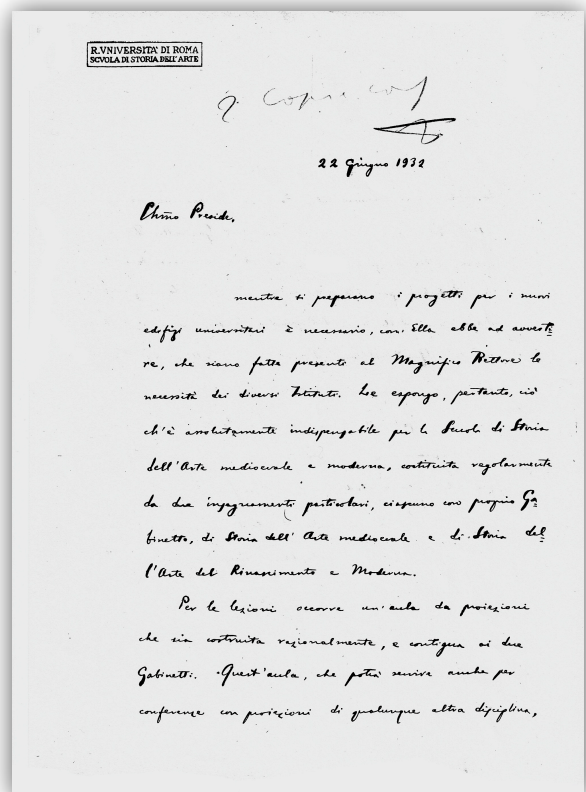 R. VNIVERSITA' DI ROMA
SCVOLA DI STORIA DELL'ARTE
2 copie
22 Giugno 1932
Ch.mo Preside,
mentre si preparano i progetti per i nuovi
edifizi universitari è necessario, com'Ella ebbe ad avverti=
re, che siano fatte presenti al Magnifico Rettore le
necessità dei diversi Istituti. Le espongo, pertanto, ciò
ch'è assolutamente indispensabile per la Scuola di Storia
dell'Arte medioevale e moderna, costituita regolarmente
da due insegnamenti particolari, ciascuno con proprio Ga=
binetto, di Storia dell'Arte medioevale e di Storia del=
l'Arte del Rinascimento e Moderna.
Per le lezioni occorre un'aula da proiezioni
che sia costruita razionalmente, e contigua ai due
Gabinetti. Quest'aula, che potrà servire anche per
conferenze con proiezioni di qualunque altra disciplina,